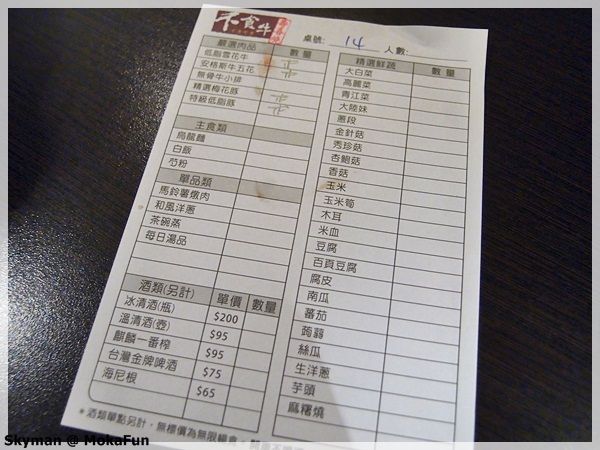 食牛
桌號: 14 人數:
嚴選肉品 數量
低脂雪花牛
安格斯牛五花
無骨牛小排
精選梅花豚
特級低脂豚
主食類
烏龍麵
白飯
芍粉
單品類
馬鈴薯燉肉
和風洋蔥
茶碗蒸
每日湯品
酒類(另計) 單價 數量
冰清酒(瓶) $200
溫清酒(壺) $95
麒麟一番榨 $95
台灣金牌啤酒 $75
海尼根 $65
*酒類單點另計,無標價為無限暢食。
精選鮮蔬 數量
大白菜
高麗菜
青江菜
大陸妹
蔥段
金針菇
秀珍菇
杏鮑菇
香菇
玉米
玉米筍
木耳
米血
豆腐
百頁豆腐
腐皮
南瓜
番茄
蒟蒻
絲瓜
生洋蔥
芋頭
麻糬燒
Skyman @ MokaFun